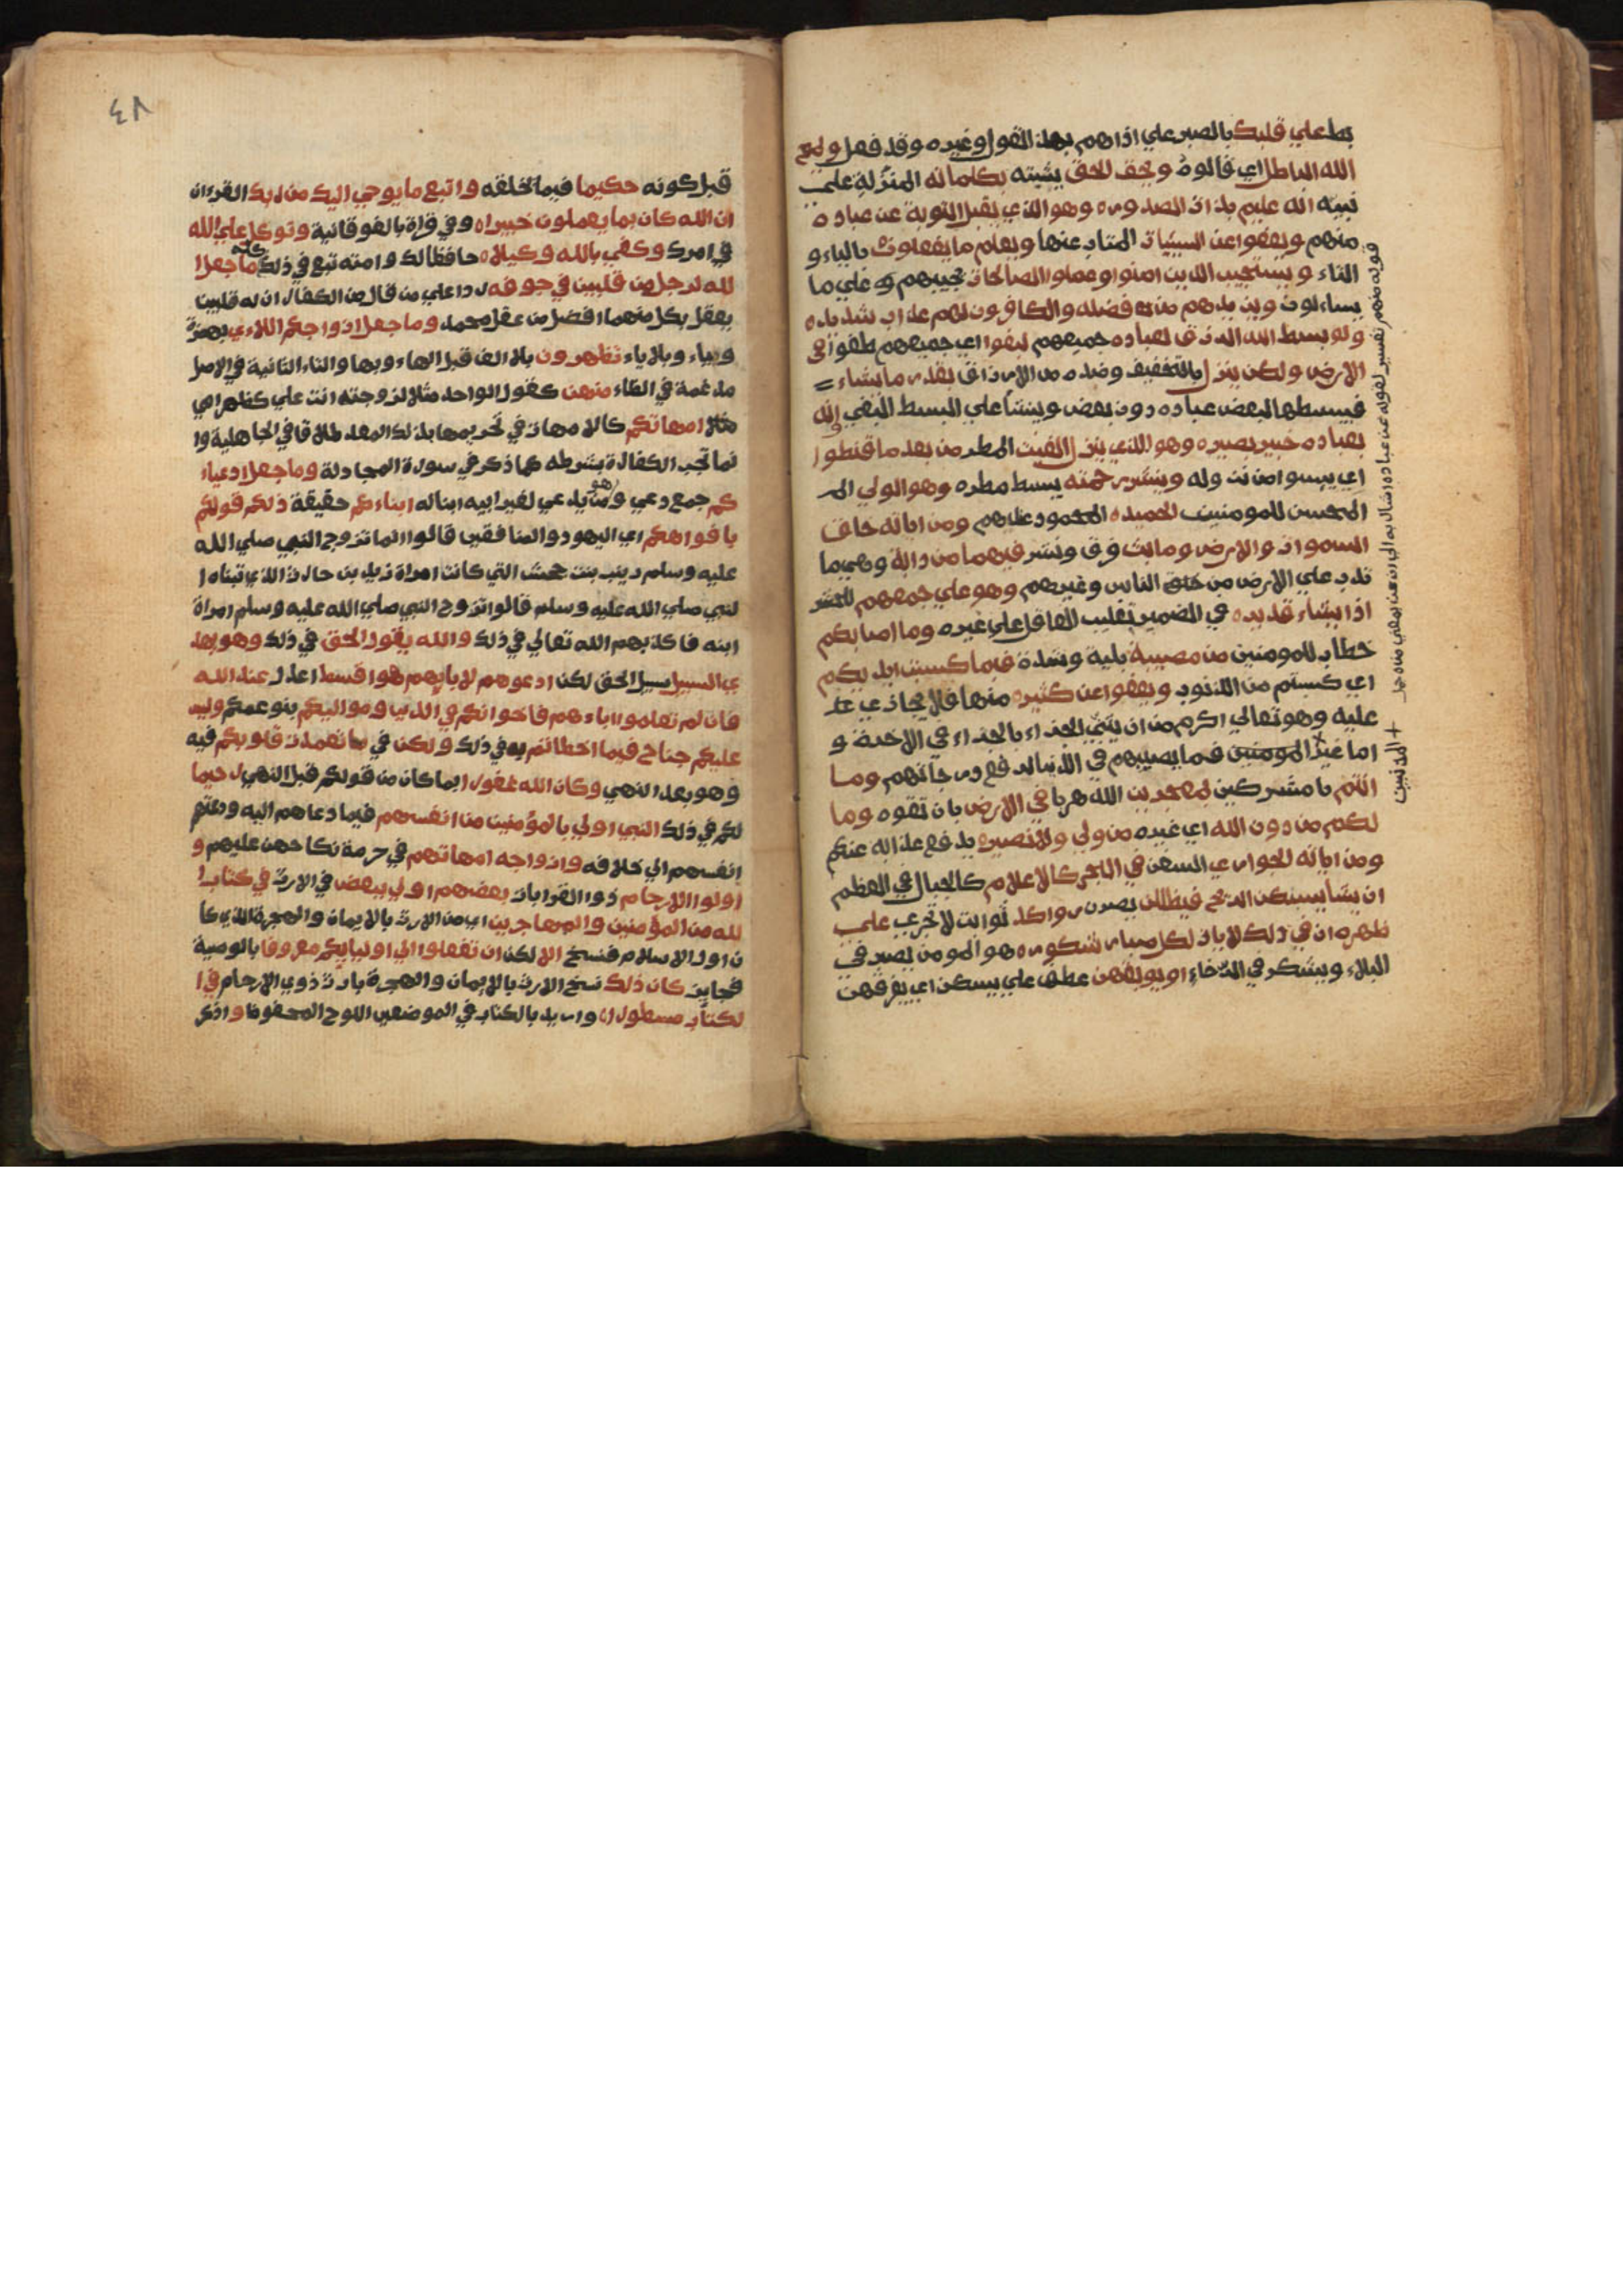 بط علي قلبك بالصبر علي اذاهم بهذا القول وغيره وقد فعل ويمح
الله الباطل اي قالوه ويحق الحق يثبته بكلماته المنزلة علي
نبيه انه عليم بذات الصدوره وهو الذي يقبل التوبة عن عباده
منهم ويعفوا عن السيئيات المتاب عنها ويعلم ما يفعلون بالياء و
التاء ويستجيب الذين امنوا وعملوا الصالحات يجيبهم الي ما
يساءلون ويزيدهم من فضله والكافرون لهم عذاب شديده
ولو بسط الله الرزق لعباده جميعهم لبغوا اي جميعهم طغوا في
الارض ولكن ينزل بالتخفيف وضده من الارزاق بقدر ما يشاء
فيبسطها لبعض عباده دون بعض وينشأ علي البسط البغي انه
بعباده خبير بصيره وهو الذي ينزل الغيث المطر من بعد ما قنطوا
اي يبسوا من نزوله وينشر رحمته يبسط مطره وهو الولي
المحسن للمومنين الحميده المحمود عليهم ومن اياته خلق
السموات والارض وما بث فرق ونشر فيهما من دابة وهي ما
تدب علي الارض من الناس وغيرهم وهو علي جمعهم للحشر
اذا يشاء قديره في الضمير تغليب العاقل علي غيره وما اصابكم
خطاب للمومنين من مصيبة بلية وشدة فبما كسبت ايديكم
اي كسبتم من الذنوب ويعفوا عن كثيره منها فلا يجازي
عليه وهو تعالي اكرم من ان يثني الجزاء بالجزاء في الاخرة و
اما غير المومنين فما يصيبهم في الدنيا لرفع درجاتهم وما
انتم يا مشركين بمعجزين الله هربا في الارض بان تفوه وما
لكم من دون الله اي غيره من ولي ولا نصيره يدفع عذابه عنكم
ومن اياته الجواري السفن في البحر كالاعلام كالجبال في العظم
ان يشا يسكن الريح فيظللن يصرن رواكد ثوابت لا تجري علي
ظهره ان في ذلك لايات لكل صبار شكوره هو المومن يصبر في
البلاء ويشكر في الرخاء او يوبقهن عطف علي يسكن اي يغرقهن
قوله منهم تفسير لقوله عن عباده
المذنبين
٤٨
قبل كونه حكيما فيما تخلقه واتبع ما يوحي اليك من ربك القران
ان الله كان بما يعملون خبيراه وفي قراة بالفوقانية وتوكل علي الله
في امرك وكفي بالله وكيلاه حافظا لك وامته تبع في ذلك كله ما جعل ا
لله لرجل من قلبين في جوفه ردا علي من قال من الكفار ان له قلبين
يعقل بكل منهما افضل من عقل محمد وما جعل ازواجكم اللاءي بهمزة
وبياء وبلا ياء تظهرون بلا الف قبل الهاء وبها والتاء الثانية في الاصل
مدغمة في الظاء منهن كقول الواحد مثلا لزوجته انت علي كظهر امي
مثلا امهاتكم كالامهات في تحريمها بذلك المعد طلاقا في الجاهلية وا
نما تجب الكفارة بشرطه كما ذكر في سورة المجادلة وما جعل ادعياء
كم جمع دعي وهو من يدعي لغير ابيه ابنا له ابناءكم حقيقة ذلكم قولكم
بافواهكم اي اليهود والمنافقين قالوا لما تزوج النبي صلي الله
عليه وسلم زينب بنت جحش التي كانت امراة زيد بن حارثة الذي تبناه ا
لنبي صلي الله عليه وسلم قالوا تزوج النبي صلي الله عليه وسلم امراة
ابنه فاكذبهم الله تعالي في ذلك والله يقول الحق في ذلك وهو يهد
ي السبيل سبيل الحق لكن ادعوهم لابايهم هو اقسط اعدل عند الله
فان لم تعلموا اباءهم فاخوانكم في الدين ومواليكم بنو عمكم وليس
عليكم جناح فيما اخطاتم به في ذلك ولكن في ما تعمدت قلوبكم فيه
وهو بعد النهي وكان الله غفورا لما كان من قولكم قبل النهي رحيما
لكم في ذلك النبي اولي بالمؤمنين من انفسهم فيما دعاهم اليه ودعتهم
انفسهم الي خلافه وازواجه امهاتهم في حرمة نكاحهن عليهم و
اولوا الارحام ذوا القرابات بعضهم اولي ببعض في الارث في كتاب ا
لله من المؤمنين والمهاجرين اي من الارث بالايمان والهجرة الذي كا
ن اول الاسلام فنسخ الا لكن ان تفعلوا الي اوليايكم معروفا بالوصية
فجايز كان ذلك نسخ الارث بالايمان والهجرة بارث ذوي الارحام في ا
لكتاب مسطورا واريد بالكتاب في الموضعين اللوح المحفوظ واذكر